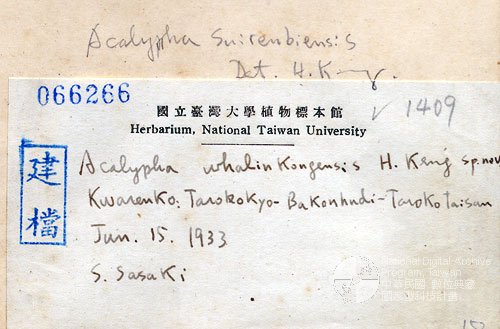 Acalypha Suirenbiensis
Det. H. Keng.
066266
國立臺灣大學植物標本館
1409
Herbarium, National Taiwan University
建檔
Acalypha whalinkongensis H. Keng sp. nov
Kwarenko: Tarokokyo-Bakonhudi-Tarokotaisan
Jun. 15. 1933
S. Sasaki
National Digital Archive
Program, Taiwan
中華民國 數位典藏
國家型科技計畫